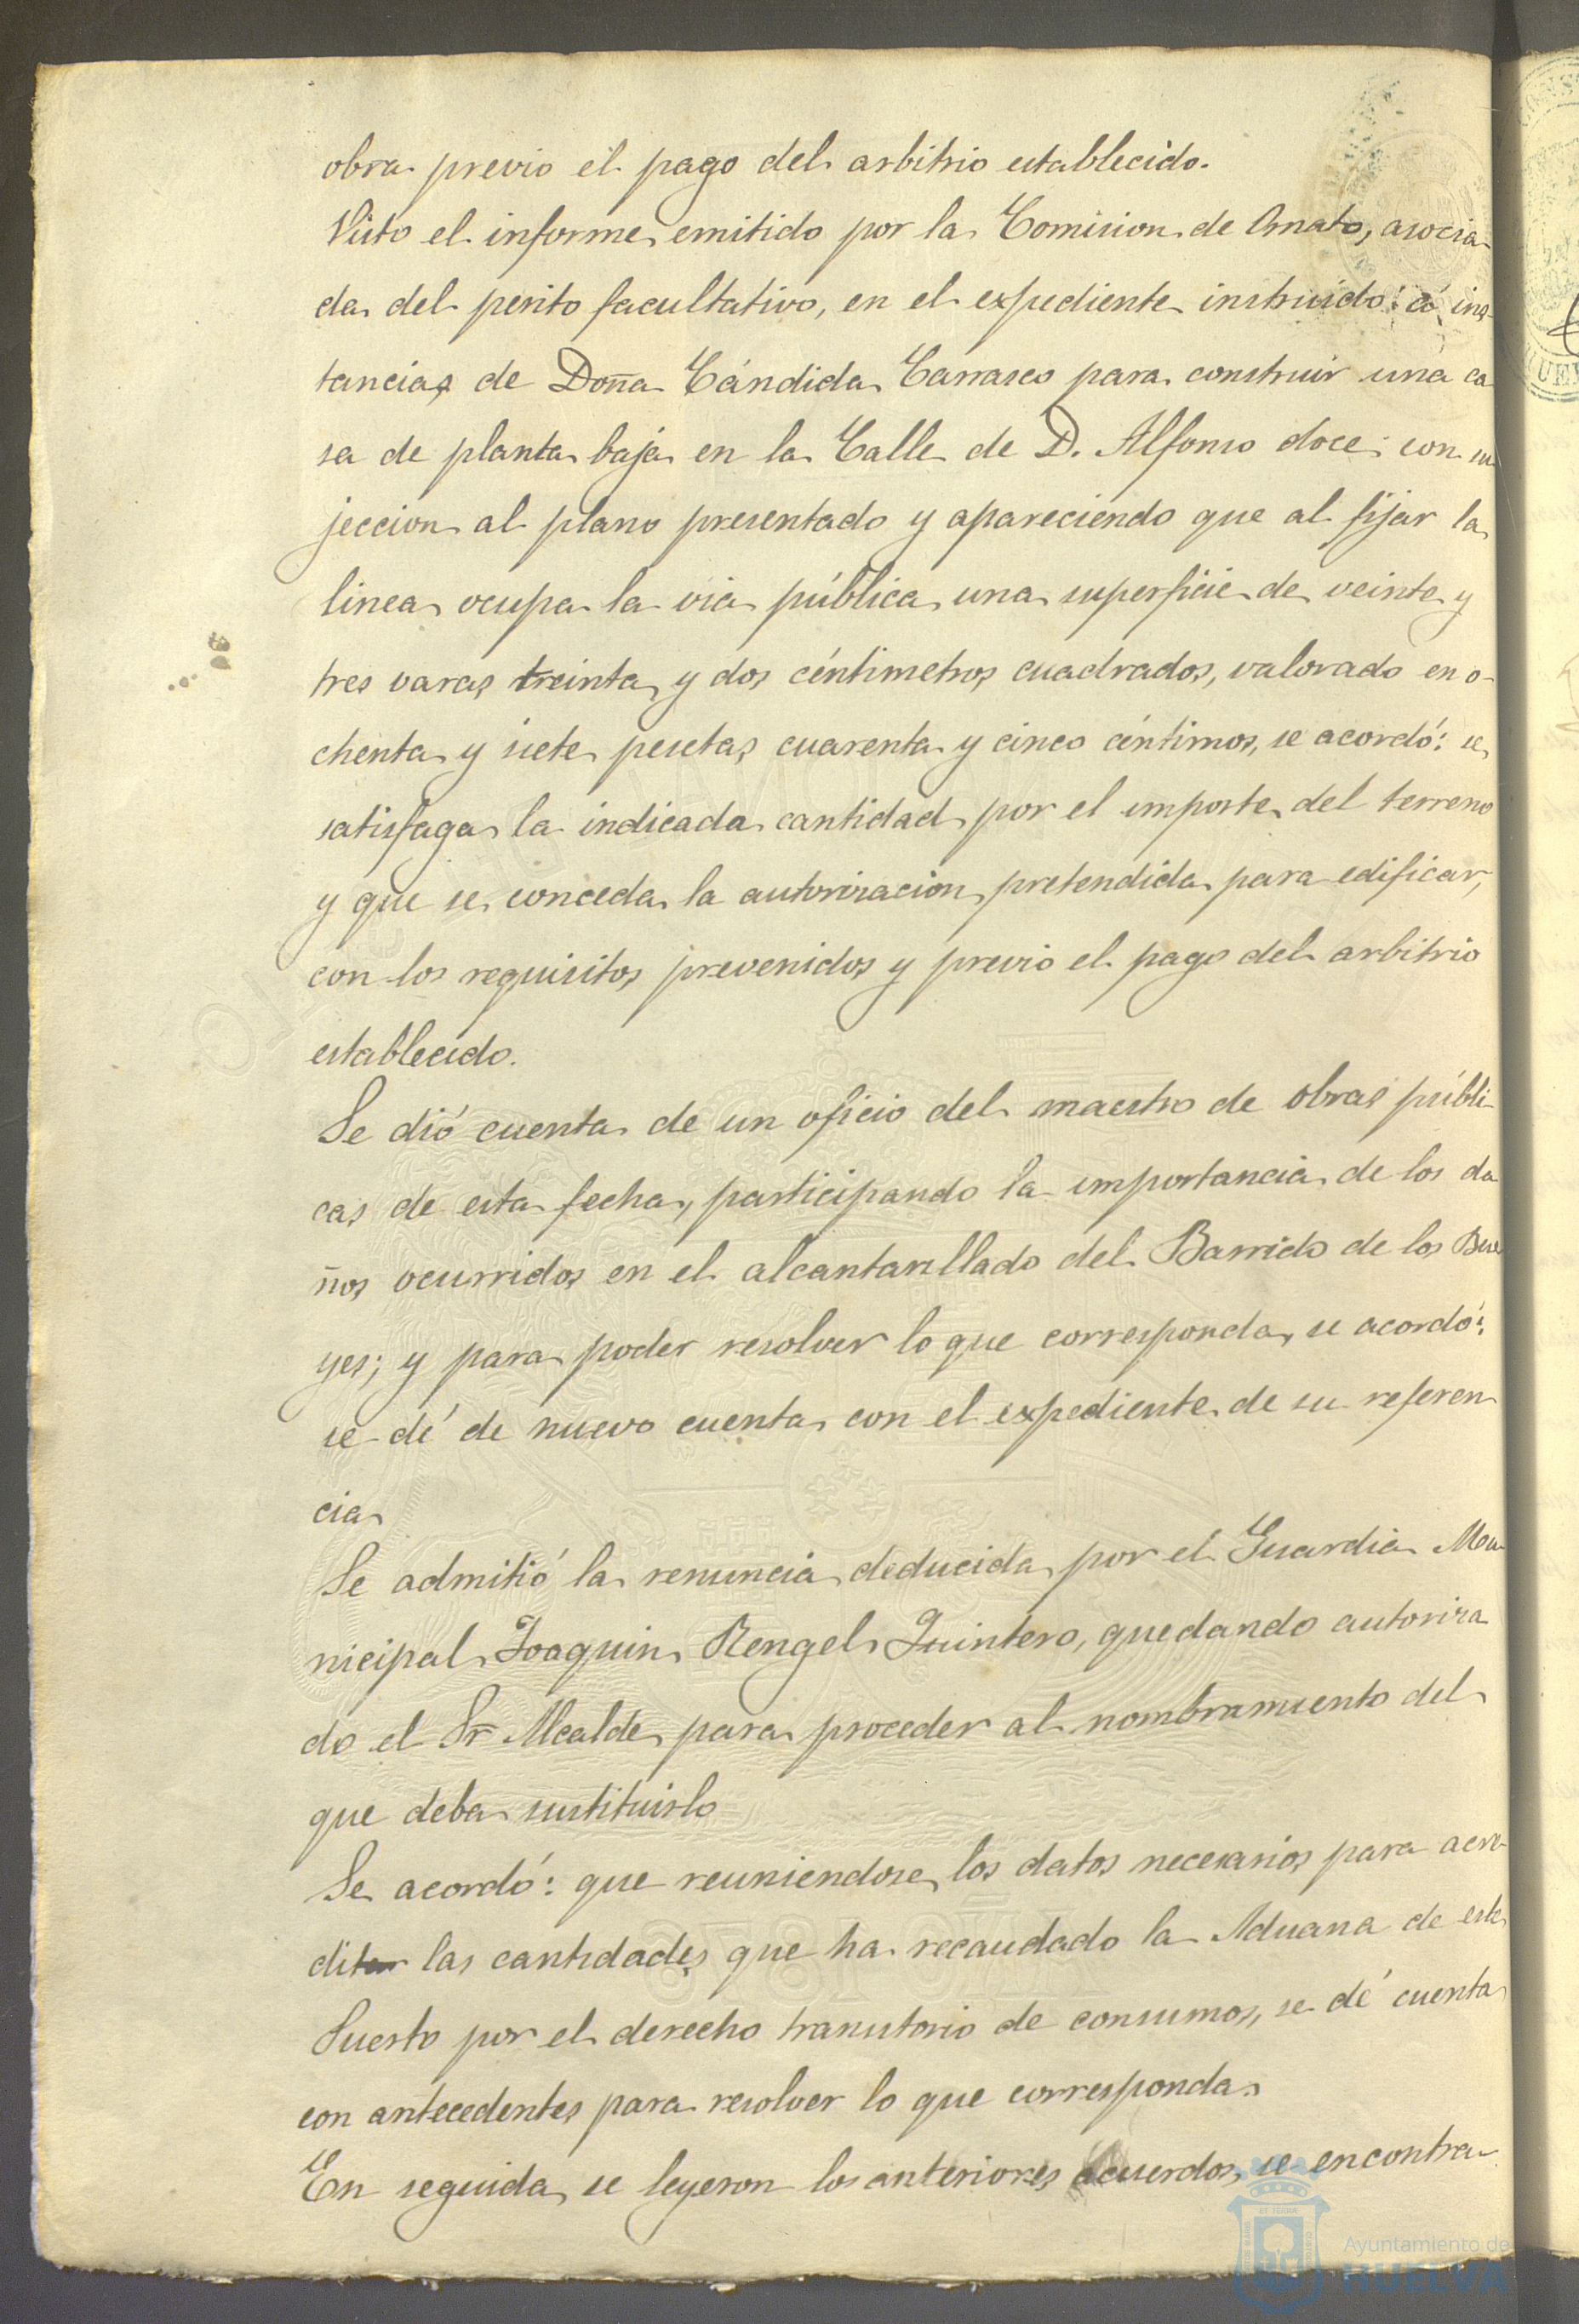 obra previo el pago del arbitrio establecido.
Visto el informe emitido por la Comision de Ornato, asocia-
da del perito facultativo, en el expediente instruido á ins-
tancias de Doña Cándida Carrasco para construir una ca
sa de planta baja en la Calle de D. Alfonso doce con su
jeccion al plano presentado y apareciendo que al fijar la
linea ocupa la via pública una superficie de veinte y
tres varas treinta y dos céntimetros cuadrados, valorado en o-
chenta y siete pesetas cuarenta y cinco céntimos, se acordó: se
satisfaga la indicada cantidad por el importe del terreno
y que se conceda la autorizacion pretendida para edificar,
con los requisitos prevenidos y previo el pago del arbitrio
establecido.
Se dió cuenta de un oficio del maestro de obras públi-
cas de esta fecha, participando la importancia de los da
ños ocurridos en el alcantarillado del Barrido de los Bue
yes; y para poder resolver lo que corresponda, se acordó:
se dé de nuevo cuenta con el expediente de su referen
cia
Se admitió la renuncia deducida por el Guardia Mu
nicipal Joaquin Rengel Quintero, quedando autoriza
do el Sr Alcalde para proceder al nombramiento del
que deba sustituirlo
Se acordó: que reuniendose los datos necesarios para acre-
ditar las cantidades que ha recaudado la Aduana de este
Puerto por el derecho transitorio de consumos, se dé cuenta
con antecedentes para resolver lo que corresponda.
En seguida se leyeron los anteriores acuerdos, se encontra-
Ayuntamiento de
HUELVA